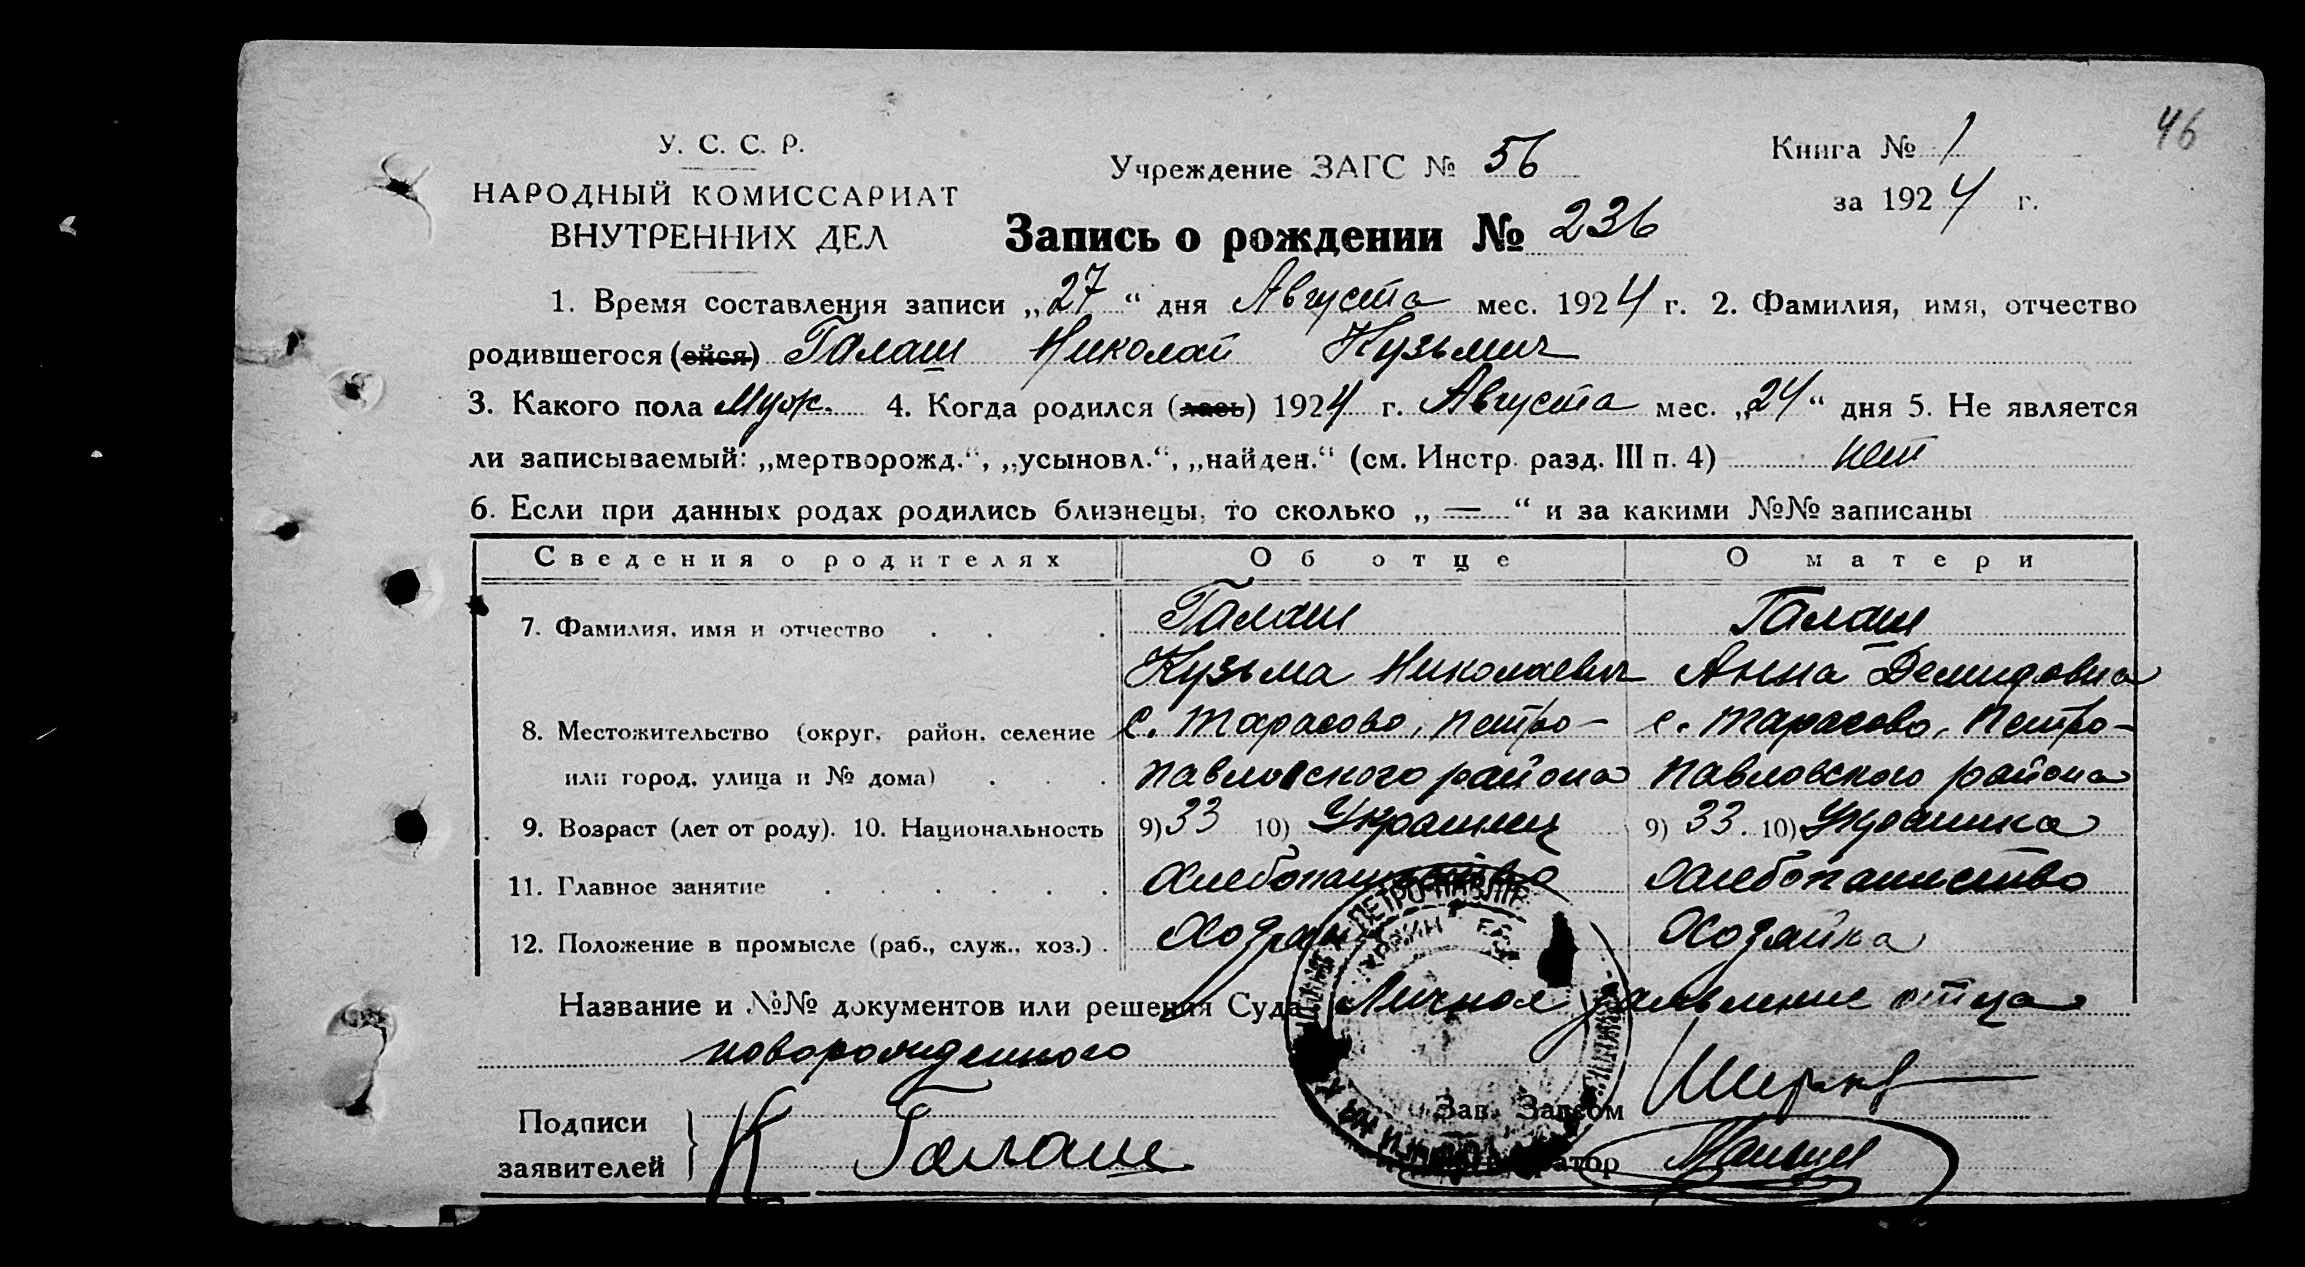 46
У. С. С. Р.
НАРОДНЫЙ КОМИССАРИАТ
ВНУТРЕННИХ ДЕЛ
Учреждение ЗАГС № 56
Книга № 1
за 1924 г.
Запись о рождении № 236
1. Время составления записи „27“ дня Августа мес. 1924 г. 2. Фамилия, имя, отчество
родившегося (ейся) Галаш Николай Кузьмич
3. Какого пола Муж. 4. Когда родился (лась) 1924 г. Августа мес. „24“ дня 5. Не является
ли записываемый: „мертворожд.“, „усыновл.“, „найден.“ (см. Инстр. разд. III п. 4) нет
6. Если при данных родах родились близнецы, то сколько „ — “ и за какими №№ записаны
Сведения о родителях Об отце О матери
7. Фамилия, имя и отчество Галаш Галаш
Кузьма Николаевич Анна Демидовна
8. Местожительство (округ, район, селение с. Тарасово, Петро- с. Тарасово, Петро-
или город, улица и № дома) павловского района павловского района
9. Возраст (лет от роду). 10. Национальность 9) 33 10) Украинец 9) 33. 10) Украинка
11. Главное занятие Хлебопашество Хлебопашество
12. Положение в промысле (раб., служ., хоз.) Хозяин Хозяйка
Название и №№ документов или решения Суда Личное заявление отца
новорожденного
Подписи
заявителей
К Галаш
Зав. Загсом